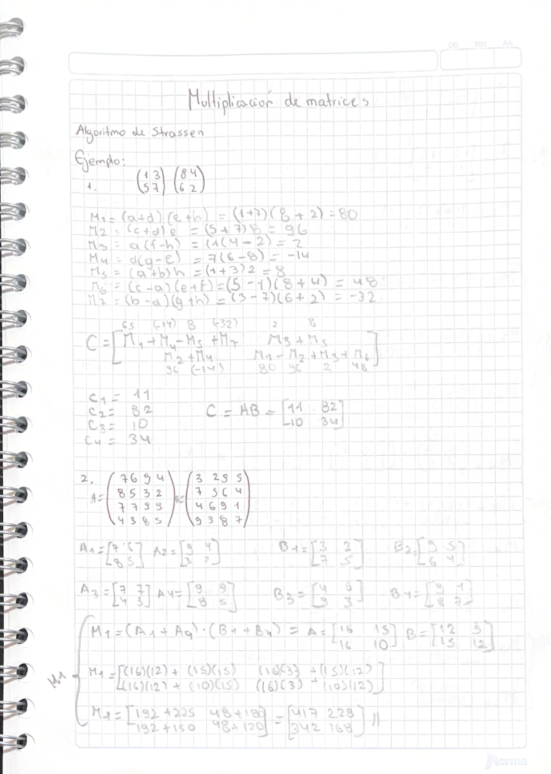 Multiplicación de matrices
Algoritmo de Strassen
Ejemplo:
1. (1 3 (8 4
5 7) 6 2)
M1 = (a+d)(e+h) = (1+7)(8+2) = 80
M2 = (c+d)e = (5+7)8 = 96
M3 = a(f-h) = (1(4-2) = 2
M4 = d(g-e) = 7(6-8) = -14
M5 = (a+b)h = (1+3)2 = 8
M6 = (c-a)(e+f) = (5-1)(8+4) = 48
M7 = (b-d)(g+h) = (3-7)(6+2) = -32
(-14) 8 (-32) 2 8
C = [M1+M4-M5+M7 M3+M5
M2+M4 M1-M2+M3+M6]
96 (-14) 80 96 2 48
C1 = 11
C2 = 82
C3 = 10
C4 = 34
C = AB = [11 82
10 34]
2.
A = (7 6 9 4
8 5 3 2
7 7 9 9
4 3 8 5)
(3 2 9 5
7 5 6 4
4 6 9 1
9 3 8 7)
A1 = A2 = [9 4 B1 = [3 2 B2
7 5]
A3 = [7 7 A4 = B3 = B4 =
M1 = (A1+A4)·(B1+B4) = A = [16 15 B = [12 3
16 10] 15 12]
M1
M1 = [(16)(12) + (15)(15) (16)(3) + (15)(12)
(16)(12) + (10)(15) (16)(3) + (10)(12)]
M1 = [192+225 48+180 = [417 228
192+150 48+120] 342 168] //
Norma